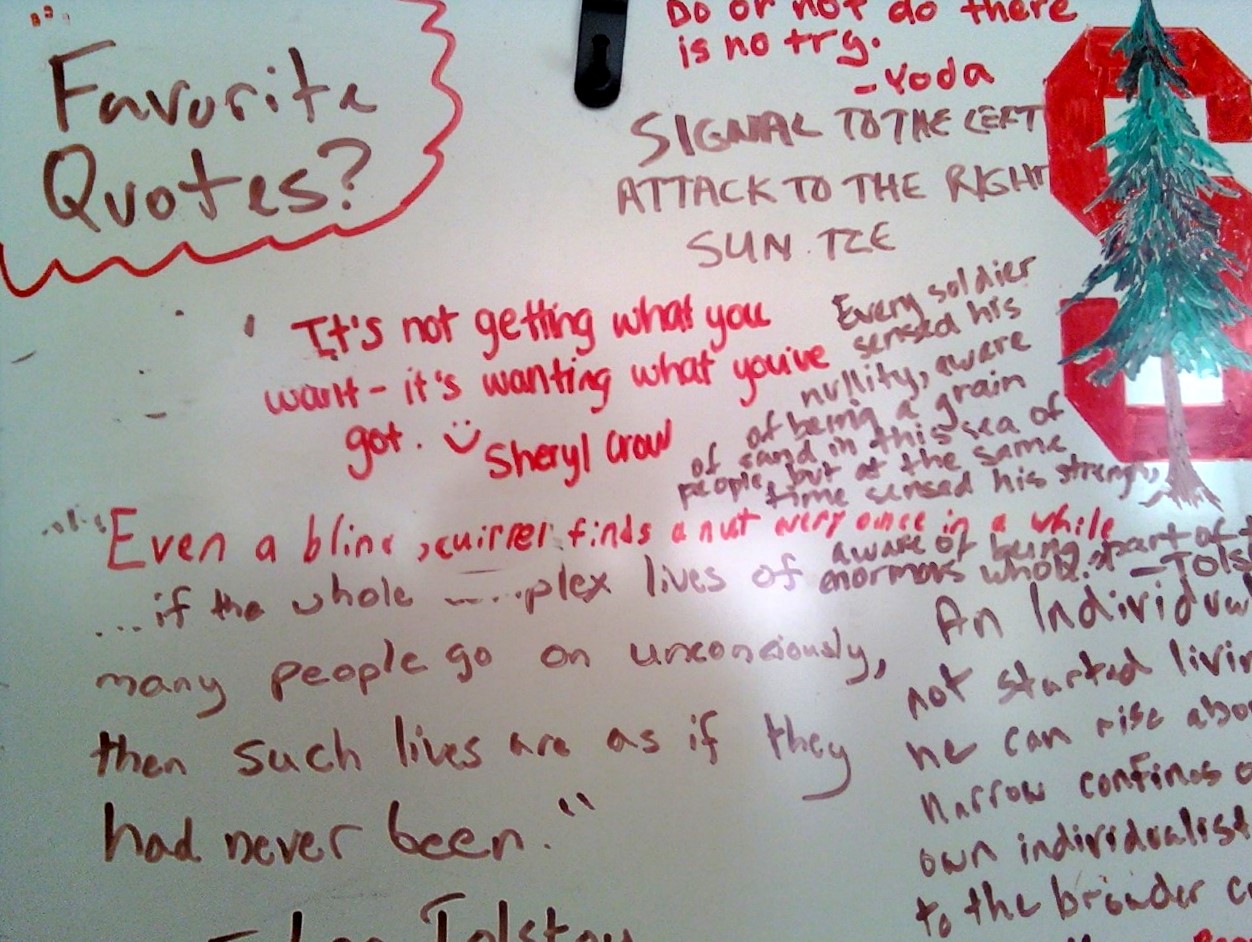 Favorite
Quotes?
Do or not do there
is no try.
-Yoda
SIGNAL TO THE LEFT
ATTACK TO THE RIGHT
SUN TZE
It's not getting what you
want - it's wanting what you've
got. Sheryl Crow
Every soldier
sensed his
nullity, aware
of being a grain
of sand in this sea of
people, but at the same
time sensed his strength,
aware of being part of
enormous whole. -Tols
"Even a blind squirrel finds a nut every once in a while
...if the whole plex lives of
many people go on unconciously,
then such lives are as if they
had never been."
- Leo Tolstoy
An Individual
not started livin
he can rise abo
narrow confines o
own individualist
to the broader c